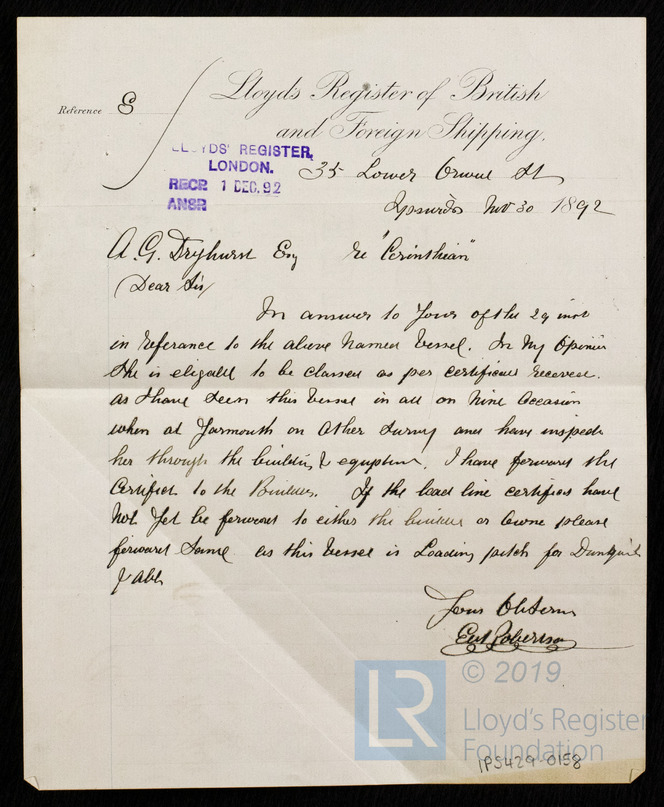 Lloyds Register of British
and Foreign Shipping.
Reference 8
LLOYDS' REGISTER,
LONDON.
RECD 1 DEC. 92
ANSR
35 Lower Orwell St
Nov 30 1892
A. G. Dryhurst Esq re "Corinthian"
Dear Sir
In answer to Yours of the 29 inst
in referance to the above Named Vessel. In My Opinion
She is eligable to be classed as per certificate received.
as I have Seen this Vessel in all on Nine Occasion
when at Yarmouth on Other Survey and have inspected
her through the building & equiptment. I have forward the
Certificet to the Builders. If the load line certificet have
Not Yet be forward to either the builder or Owner please
forward Same as this Vessel is Loading pitch for Dunkirk
Yours Obt Serv
Robertson
LR
© 2019
Lloyd's Register
Foundation
IPS429-0158